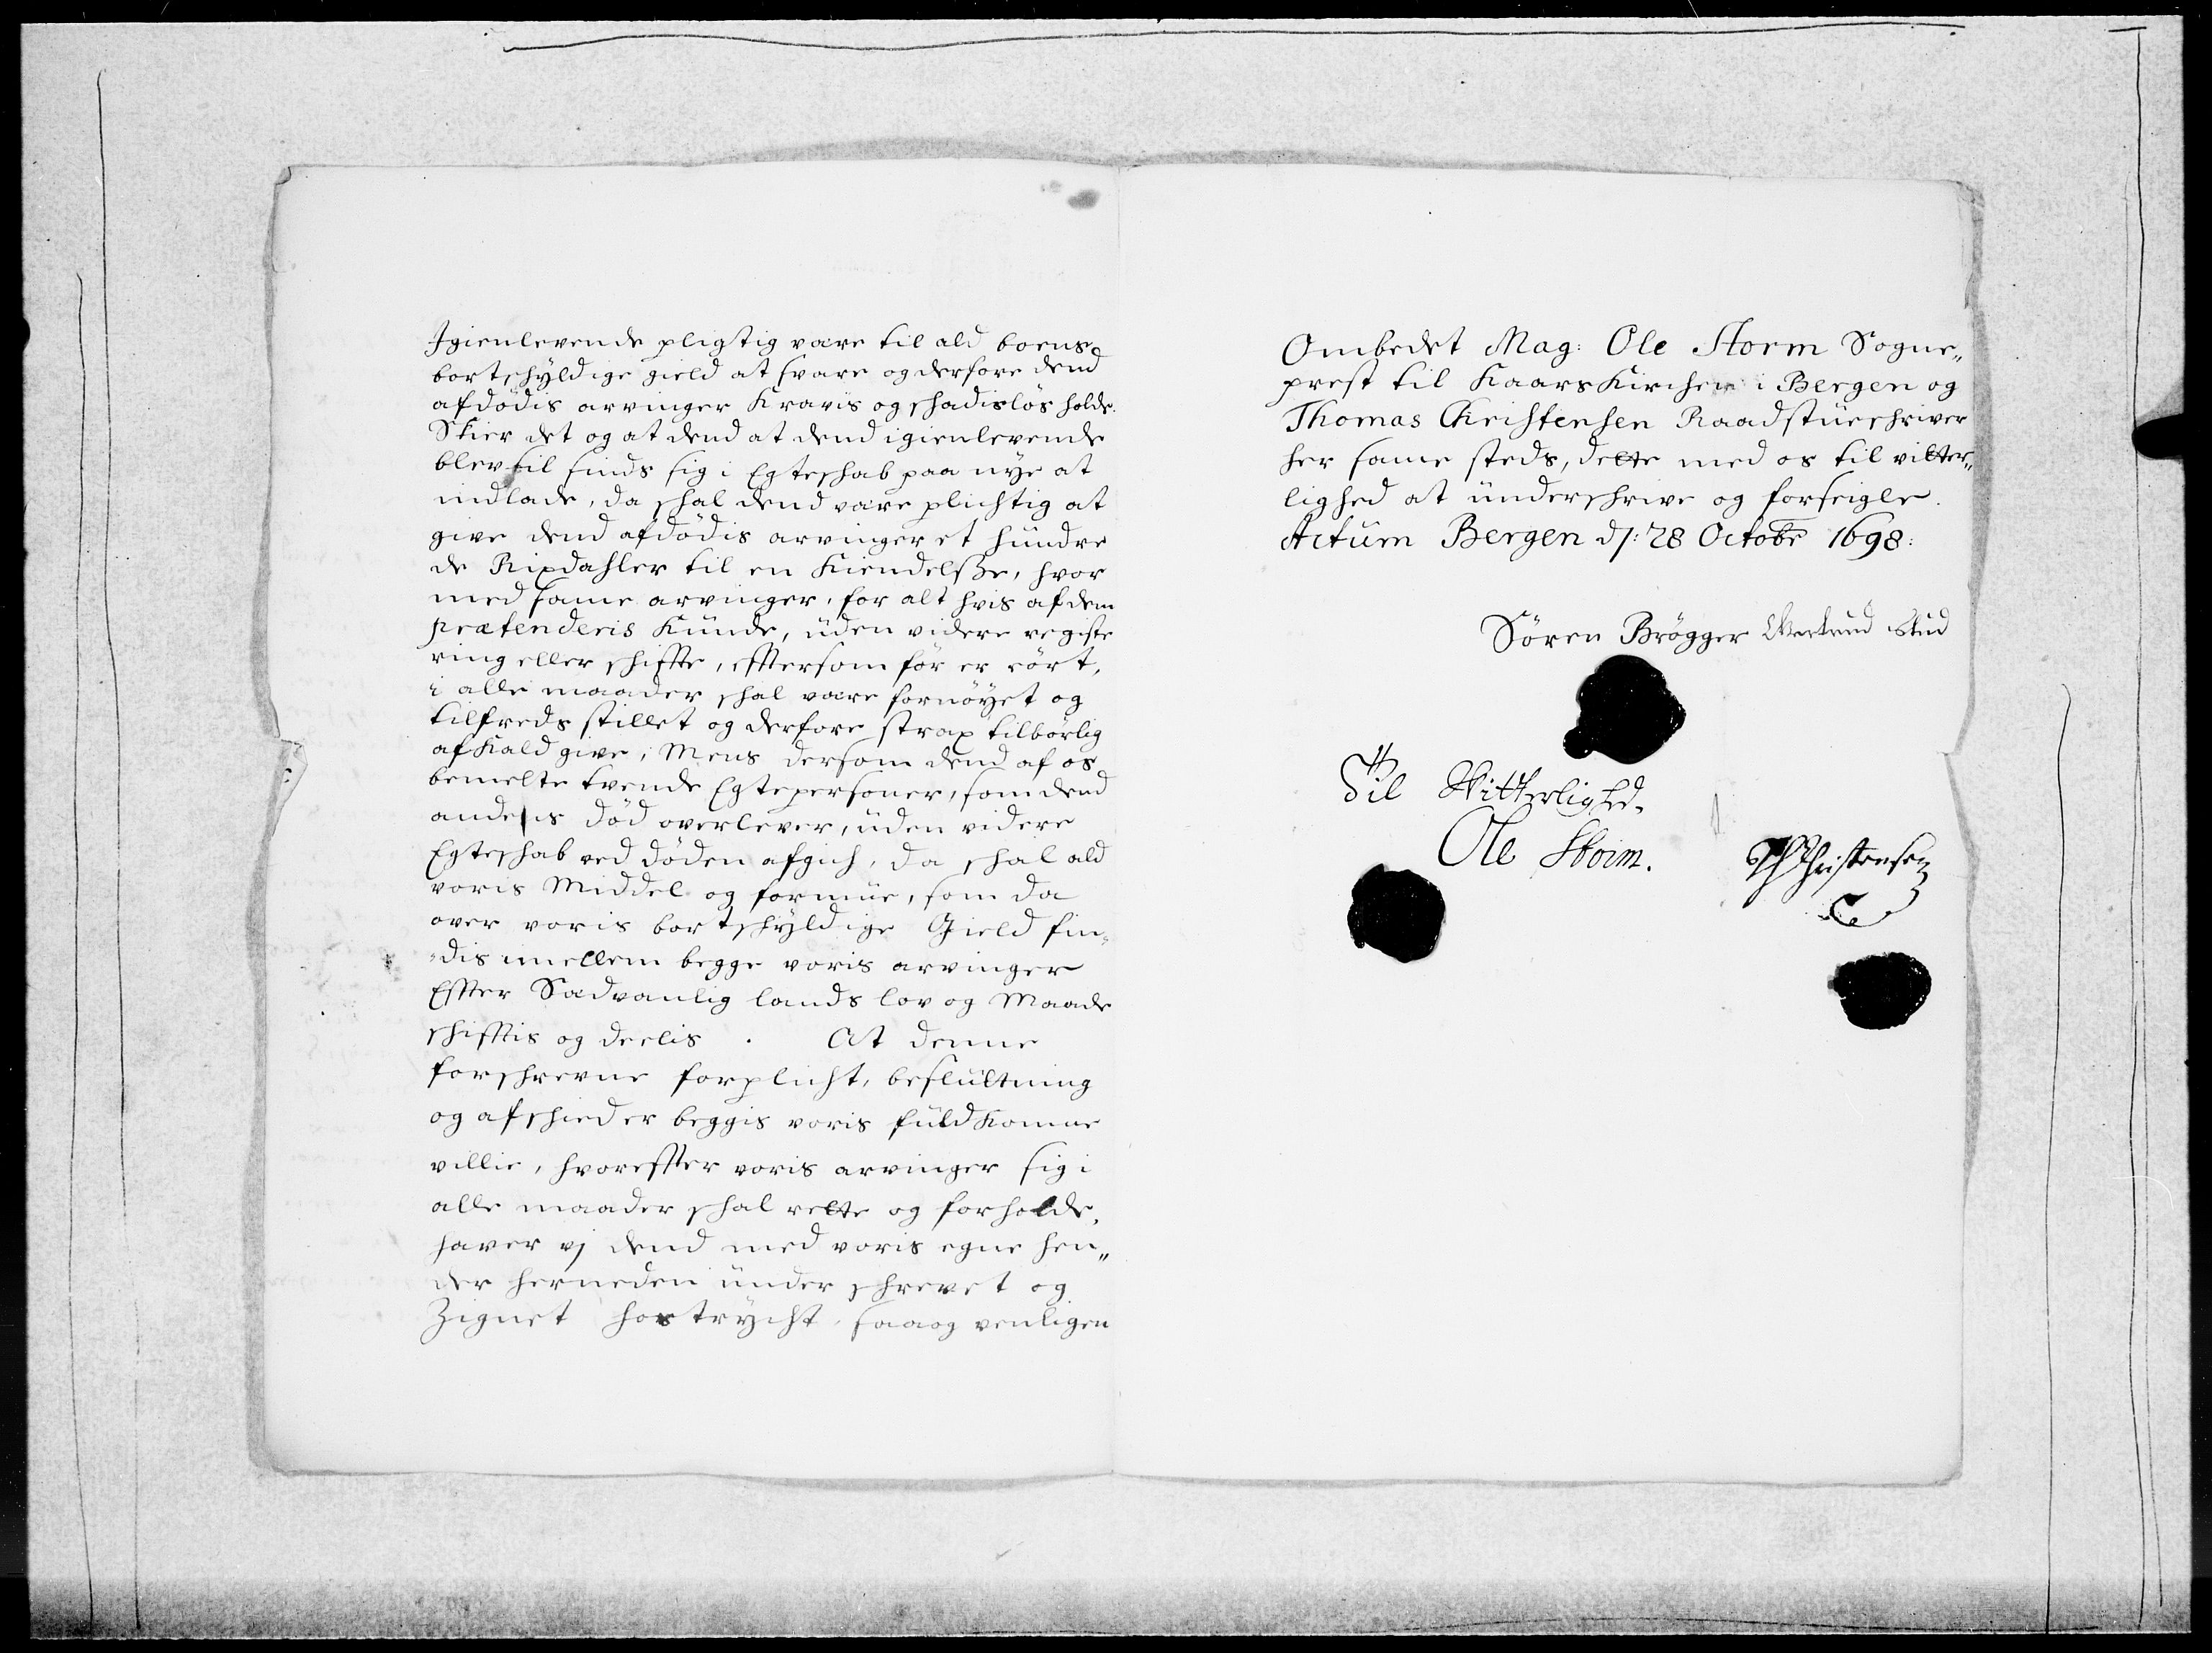 Igienlevende pligtig være til ald boens
bortschyldige gield at svare og derfore dend
afdødis arvinger Kravis og schadisløs holde.
Skier det og at dend at dend igienlevende
blev til sinds sig i Egteschab paa nye at
indlade, da schal dend være plichtig at
give dend afdødis arvinger et hundre
de Rixdahler til en Kiendelsse, hvor
med samme arvinger, for alt hvis af dem
prætenderis Kunde, uden videre registe
ring eller schiffte, efftersom før er rørt,
i alle maader schal være fornøyet og
tilfreds stillet og derfore strax tilbørlig
afkald give, Mens dersom dend af os
bemelte tvende Egtepersoner, som dend
andens død overlever, uden videre
Egteschab ved døden afgich, da schal ald
voris Middel og formue, som da
over voris bortschyldige Gield fin„
dis imellem begge voris arvinger
Effter Sædvanlig lands lov og Maade
schifftis og deelis. At denne
forschrevne forplicht, beslutning
og afschied er beggis voris fuldkomne
villie, hvoreffter voris arvinger sig i
alle maader schal rette og forholde,
haver vj dend med voris egne hen„
der herneden underschrevet og
Zignet hostrycht, saa og venligen
Ombedet Mag: Ole Storm Sogne„
prest til Kaars Kirchen i Bergen og
Thomas Christensen Raadstueschriver
her samme steds, dette med os til vitter„
lighed at underschrive og forseigle.
Actum Bergen dj: 28 Octobr 1698:
Søren Brøgger
Til Witterlighed.
Ole Storm.
Th Christensen